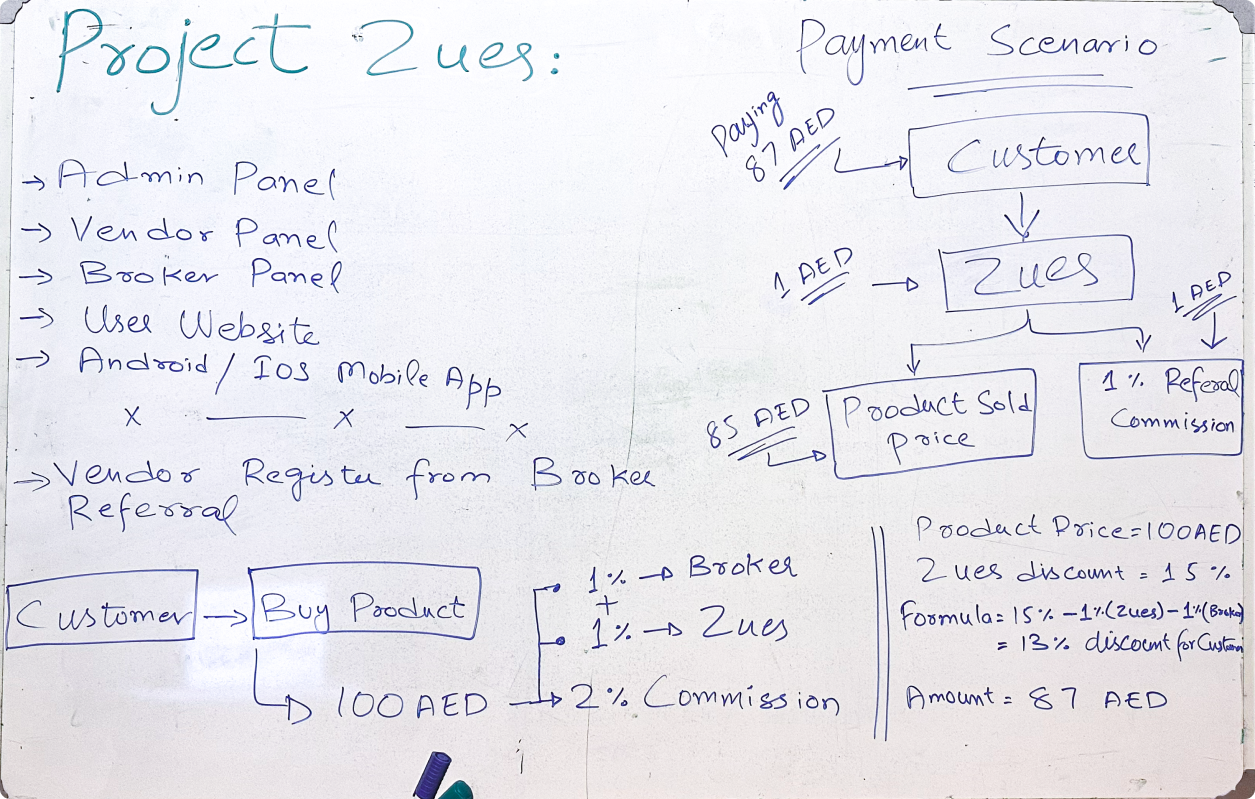 Project Zues:
→ Admin Panel
→ Vendor Panel
→ Broker Panel
→ User Website
→ Android / IOS Mobile App
x — x — x
→ Vendor Register from Broker
Referral
Customer → Buy Product
1% → Broker
+
1% → Zues
100 AED → 2% Commission
Payment Scenario
Paying
87 AED
Customer
1 AED → Zues
1 AED
85 AED
Product Sold
Price
1% Referal
Commission
Product Price = 100AED
Zues discount = 15%
Formula = 15% - 1% (Zues) - 1% (Broker)
= 13% discount for Customer
Amount = 87 AED